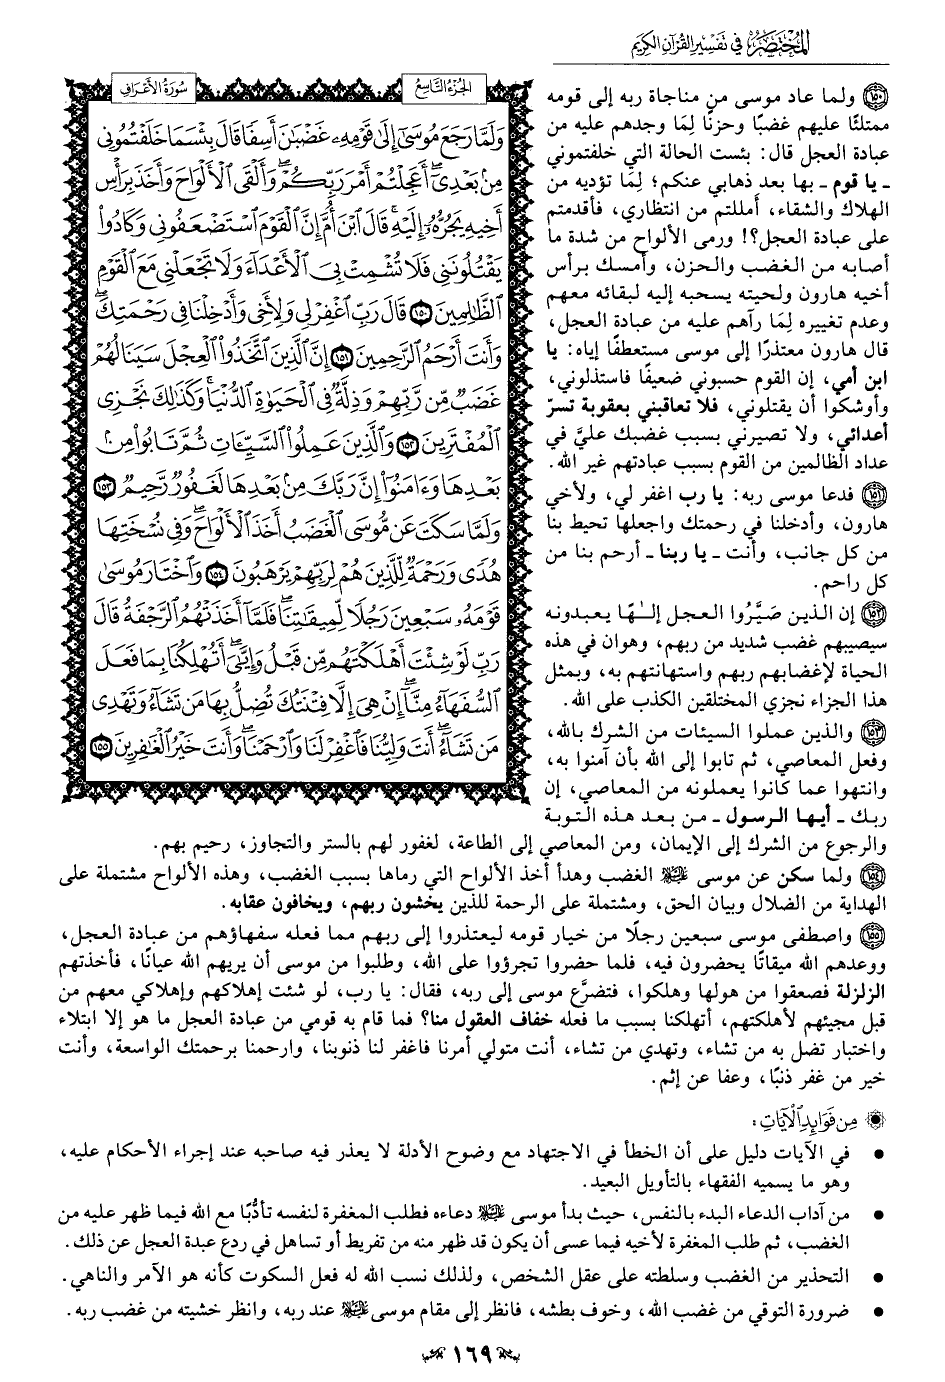 المختصر في تفسير القرآن الكريم
الجزء التاسع
سورة الأعراف
وَلَمَّا رَجَعَ مُوسَىٰٓ إِلَىٰ قَوْمِهِۦ غَضْبَٰنَ أَسِفًا قَالَ بِئْسَمَا خَلَفْتُمُونِي
مِنۢ بَعْدِيٓۖ أَعَجِلْتُمْ أَمْرَ رَبِّكُمْۖ وَأَلْقَى ٱلْأَلْوَاحَ وَأَخَذَ بِرَأْسِ
أَخِيهِ يَجُرُّهُۥٓ إِلَيْهِۚ قَالَ ٱبْنَ أُمَّ إِنَّ ٱلْقَوْمَ ٱسْتَضْعَفُونِي وَكَادُوا۟
يَقْتُلُونَنِي فَلَا تُشْمِتْ بِيَ ٱلْأَعْدَآءَ وَلَا تَجْعَلْنِي مَعَ ٱلْقَوْمِ
ٱلظَّٰلِمِينَ ١٥٠ قَالَ رَبِّ ٱغْفِرْ لِي وَلِأَخِي وَأَدْخِلْنَا فِي رَحْمَتِكَۖ
وَأَنتَ أَرْحَمُ ٱلرَّٰحِمِينَ ١٥١ إِنَّ ٱلَّذِينَ ٱتَّخَذُوا۟ ٱلْعِجْلَ سَيَنَالُهُمْ
غَضَبٌ مِّن رَّبِّهِمْ وَذِلَّةٌ فِي ٱلْحَيَوٰةِ ٱلدُّنْيَاۚ وَكَذَٰلِكَ نَجْزِي
ٱلْمُفْتَرِينَ ١٥٢ وَٱلَّذِينَ عَمِلُوا۟ ٱلسَّيِّـَٔاتِ ثُمَّ تَابُوا۟ مِنۢ
بَعْدِهَا وَءَامَنُوٓا۟ إِنَّ رَبَّكَ مِنۢ بَعْدِهَا لَغَفُورٌ رَّحِيمٌ ١٥٣
وَلَمَّا سَكَتَ عَن مُّوسَى ٱلْغَضَبُ أَخَذَ ٱلْأَلْوَاحَۖ وَفِي نُسْخَتِهَا
هُدًى وَرَحْمَةٌ لِّلَّذِينَ هُمْ لِرَبِّهِمْ يَرْهَبُونَ ١٥٤ وَٱخْتَارَ مُوسَىٰ
قَوْمَهُۥ سَبْعِينَ رَجُلًا لِّمِيقَٰتِنَاۖ فَلَمَّآ أَخَذَتْهُمُ ٱلرَّجْفَةُ قَالَ
رَبِّ لَوْ شِئْتَ أَهْلَكْتَهُم مِّن قَبْلُ وَإِيَّٰيَۖ أَتُهْلِكُنَا بِمَا فَعَلَ
ٱلسُّفَهَآءُ مِنَّآۖ إِنْ هِيَ إِلَّا فِتْنَتُكَ تُضِلُّ بِهَا مَن تَشَآءُ وَتَهْدِي
مَن تَشَآءُۖ أَنتَ وَلِيُّنَا فَٱغْفِرْ لَنَا وَٱرْحَمْنَاۖ وَأَنتَ خَيْرُ ٱلْغَٰفِرِينَ ١٥٥
١٥٠ ولما عاد موسى من مناجاة ربه إلى قومه
ممتلئًا عليهم غضبًا وحزنًا لِمَا وجدهم عليه من
عبادة العجل قال: بئست الحالة التي خلفتموني
ـ يا قوم ـ بها بعد ذهابي عنكم؛ لِمَا تؤديه من
الهلاك والشقاء، أمللتم من انتظاري، فأقدمتم
على عبادة العجل؟! ورمى الألواح من شدة ما
أصابه من الغضب والحزن، وأمسك برأس
أخيه هارون ولحيته يسحبه إليه لبقائه معهم
وعدم تغييره لِمَا رآهم عليه من عبادة العجل،
قال هارون معتذرًا إلى موسى مستعطفًا إياه: يا
ابن أمي، إن القوم حسبوني ضعيفًا فاستذلوني،
وأوشكوا أن يقتلوني، فلا تعاقبني بعقوبة تسرّ
أعدائي، ولا تصيرني بسبب غضبك عليَّ في
عداد الظالمين من القوم بسبب عبادتهم غير الله.
١٥١ فدعا موسى ربه: يا رب اغفر لي، ولأخي
هارون، وأدخلنا في رحمتك واجعلها تحيط بنا
من كل جانب، وأنت ـ يا ربنا ـ أرحم بنا من
كل راحم.
١٥٢ إن الذين صَيَّرُوا العجل إلـٰهًا يعبدونه
سيصيبهم غضب شديد من ربهم، وهوان في هذه
الحياة لإغضابهم ربهم واستهانتهم به، وبمثل
هذا الجزاء نجزي المختلقين الكذب على الله.
١٥٣ والذين عملوا السيئات من الشرك بالله،
وفعل المعاصي، ثم تابوا إلى الله بأن آمنوا به،
وانتهوا عما كانوا يعملونه من المعاصي، إن
ربك ـ أيها الرسول ـ من بعد هذه التوبة
والرجوع من الشرك إلى الإيمان، ومن المعاصي إلى الطاعة، لغفور لهم بالستر والتجاوز، رحيم بهم.
١٥٤ ولما سكن عن موسى عليه السلام الغضب وهدأ أخذ الألواح التي رماها بسبب الغضب، وهذه الألواح مشتملة على
الهداية من الضلال وبيان الحق، ومشتملة على الرحمة للذين يخشون ربهم، ويخافون عقابه.
١٥٥ واصطفى موسى سبعين رجلًا من خيار قومه ليعتذروا إلى ربهم مما فعله سفهاؤهم من عبادة العجل،
ووعدهم الله ميقاتًا يحضرون فيه، فلما حضروا تجرؤوا على الله، وطلبوا من موسى أن يريهم الله عيانًا، فأخذتهم
الزلزلة فصعقوا من هولها وهلكوا، فتضرَّع موسى إلى ربه، فقال: يا رب، لو شئت إهلاكهم وإهلاكي معهم من
قبل مجيئهم لأهلكتهم، أتهلكنا بسبب ما فعله خفاف العقول منا؟ فما قام به قومي من عبادة العجل ما هو إلا ابتلاء
واختبار تضل به من تشاء، وتهدي من تشاء، أنت متولي أمرنا فاغفر لنا ذنوبنا، وارحمنا برحمتك الواسعة، وأنت
خير من غفر ذنبًا، وعفا عن إثم.
من فوائد الآيات:
• في الآيات دليل على أن الخطأ في الاجتهاد مع وضوح الأدلة لا يعذر فيه صاحبه عند إجراء الأحكام عليه،
وهو ما يسميه الفقهاء بالتأويل البعيد.
• من آداب الدعاء البدء بالنفس، حيث بدأ موسى عليه السلام دعاءه فطلب المغفرة لنفسه تأدُّبًا مع الله فيما ظهر عليه من
الغضب، ثم طلب المغفرة لأخيه فيما عسى أن يكون قد ظهر منه من تفريط أو تساهل في ردع عبدة العجل عن ذلك.
• التحذير من الغضب وسلطته على عقل الشخص، ولذلك نسب الله له فعل السكوت كأنه هو الآمر والناهي.
• ضرورة التوقي من غضب الله، وخوف بطشه، فانظر إلى مقام موسى عليه السلام عند ربه، وانظر خشيته من غضب ربه.
١٦٩